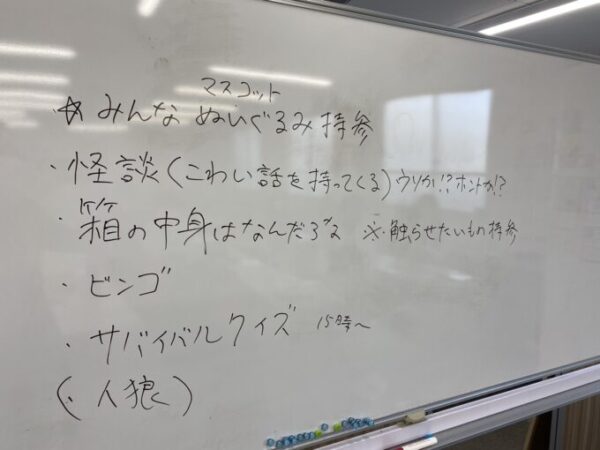 マスコット
☆ みんな ぬいぐるみ持参
・怪談(こわい話を持ってくる)ウソか!?ホントか!?
・箱の中身はなんだろな ※触らせたいもの持参
・ビンゴ
・サバイバルクイズ 15時~
(・人狼)